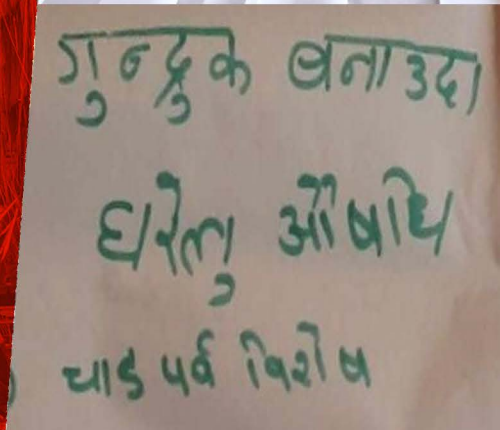 गुन्द्रुक बनाउदा
घरेलु औषधि
चाड पर्व विशेष